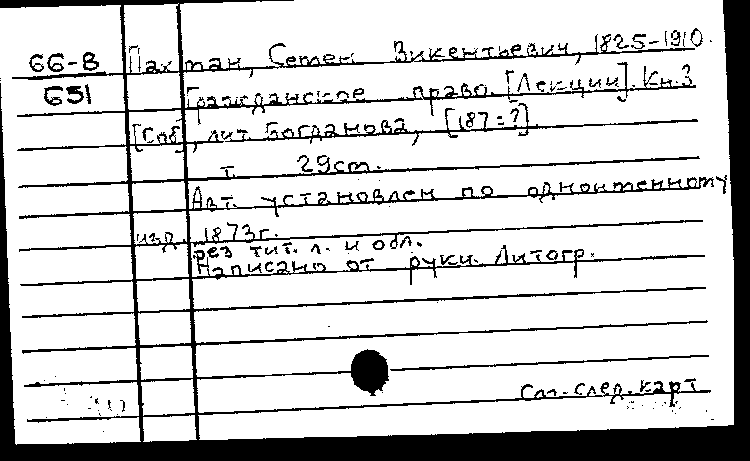 66-8 Пахман, Семен Викентьевич, 1825-1910.
651 Гражданское право. [Лекции]. Кн. 3
[Спб], лит. Богданова, [187=?].
т. 29cm.
Авт. установлен по одноименному
изд. 1873г.
Без тит. л. и обл.
Написано от руки. Литогр.
См. след. карт